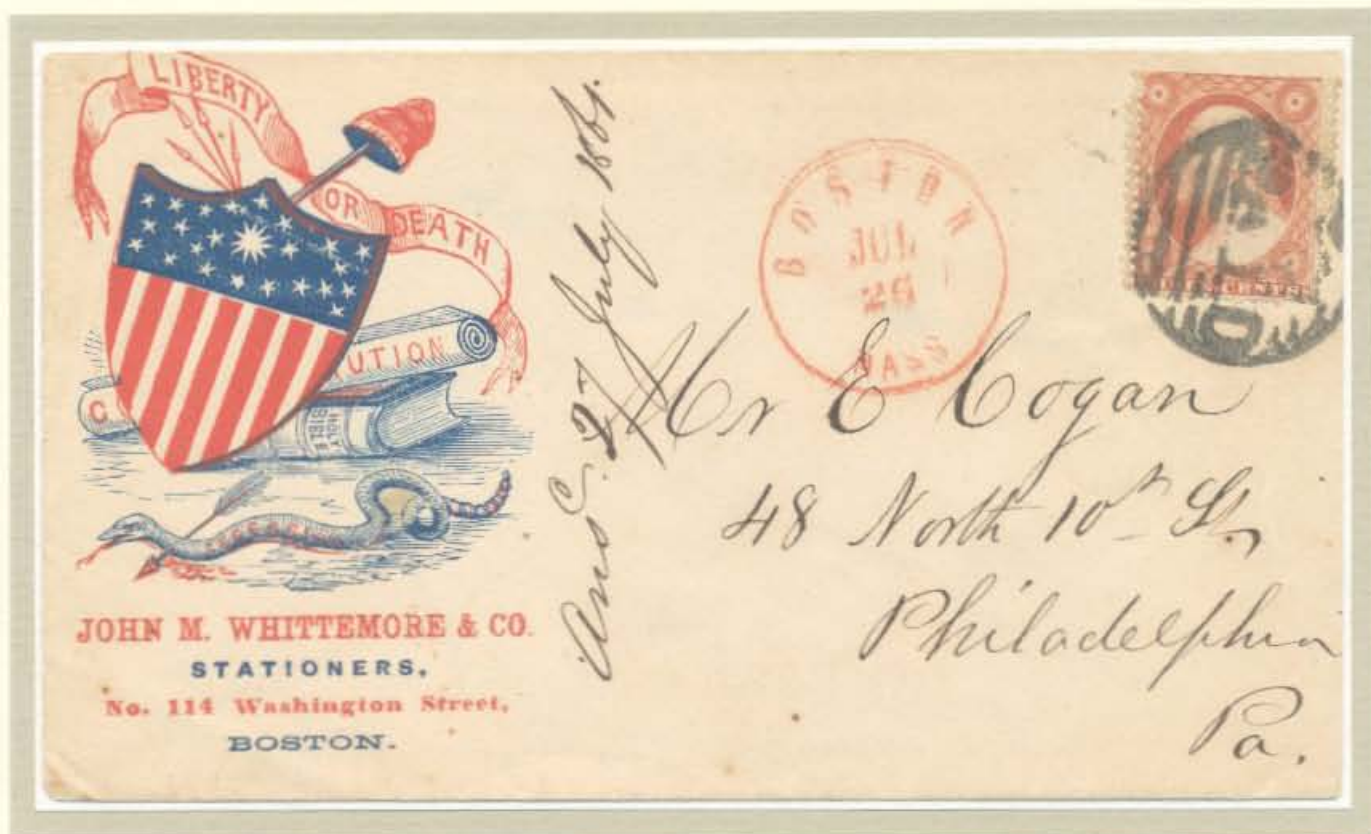 LIBERTY
OR DEATH
C UTION
HOLY
BIBLE
JOHN M. WHITTEMORE & CO.
STATIONERS,
No. 114 Washington Street,
BOSTON.
Ansd. 27 July 1861.
BOSTON
JUL
MASS
PAID
Mr E Cogan
48 North 10th St.
Philadelphia
Pa.